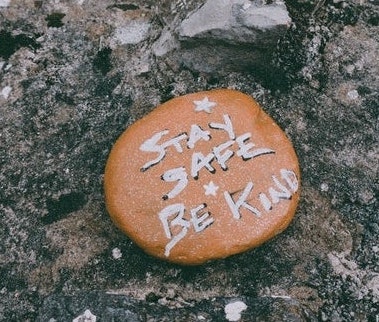 STAY
SAFE
BE KIND